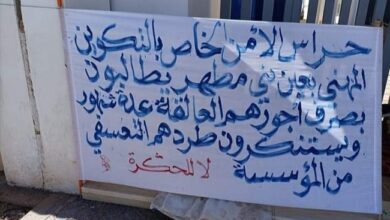 حراس الأمن الخاص بالتكوين
المهني بعين بني مطهر يطالبون
بصرف أجورهم العالقة لعدة شهور
ويستنكرون طردهم التعسفي
من المؤسسة
لا للحكرة